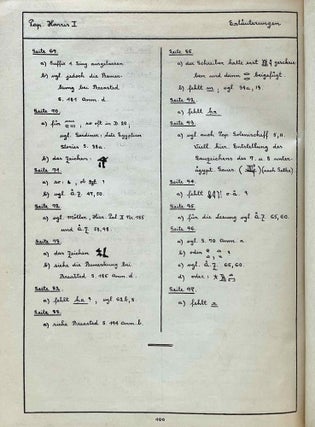 Pap. Harris I
Erläuterungen
Seite 69.
a) Suffix 1 Sing ausgelassen
b) vgl jedoch die Bemer-
kung bei Breasted
S. 181 Anm. d.
Seite 70.
a) für , so oft in D. 20,
vgl. Gardiner: Late Egyptian
Stories S. 39a.
b) das Zeichen:
Seite 71.
a) so: 6, ob
b) vgl. Ä.Z. 47, 50.
Seite 72.
a) vgl. Möller, Hier. Pal II Nr. 185
und Ä.Z. 59, 48.
a) das Zeichen
b) siehe die Bemerkung bei
Breasted S. 185 Anm. d.
Seite 82.
a) fehlt ? vgl. 62b, 8.
a) siehe Breasted S. 194 Anm. b.
a) der Schreiber hatte erst geschrie
ben und dann beigefügt.
b) fehlt , vgl 39a, 13.
Seite 92.
a) fehlt
a) vgl. auch Pap. Golenischeff 5, 11.
Viell. hier Entstellung des
Gauzeichens des 7. u 8 unter-
ägypt. Gaues. (nach Sethe)
Seite 94.
a) fehlt
Seite 95.
a) für die Lesung vgl. Ä.Z. 65, 60.
Seite 96.
a) vgl. S. 70 Anm a
b) oder
c) vgl. Ä.Z. 65, 60.
d) oder:
a) fehlt
100